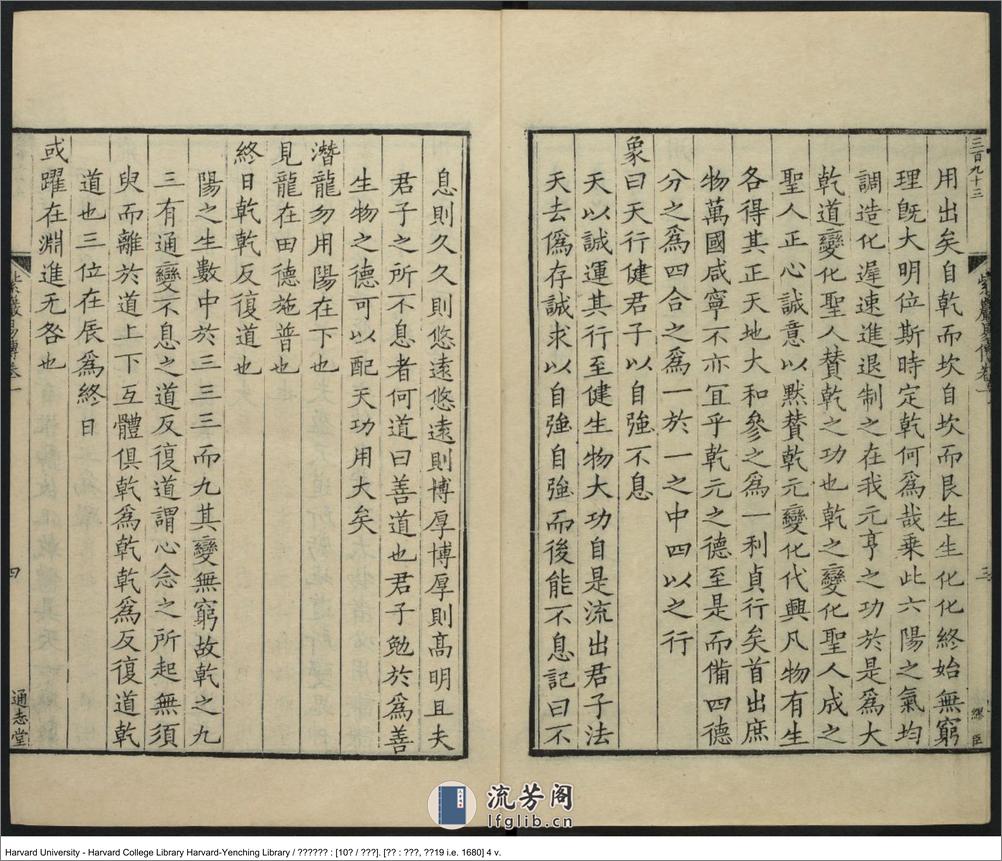 三百九十三
用出矣自乾而坎自坎而艮生生化化終始無窮
理旣大明位斯時定乾何爲哉乗此六陽之氣均
調造化遲速進退制之在我元亨之功於是爲大
乾道變化聖人賛乾之功也乾之變化聖人成之
聖人正心誠意以黙賛乾元變化代興凡物有生
各得其正天地大和參之爲一利貞行矣首出庶
物萬國咸寧不亦冝乎乾元之德至是而備四德
分之爲四合之爲一於一之中四以之行
象曰天行健君子以自強不息
天以誠運其行至健生物大功自是流出君子法
天去僞存誠求以自強自強而後能不息記曰不
三
繆臣
息則久久則悠遠悠遠則博厚博厚則髙明且夫
君子之所不息者何道曰善道也君子勉於爲善
生物之德可以配天功用大矣
潛龍勿用陽在下也
見龍在田德施普也
終日乾乾反復道也
陽之生數中於三三三而九其變無窮故乾之九
三有通變不息之道反復道謂心念之所起無須
臾而離於道上下互體俱乾爲乾乾爲反復道乾
道也三位在辰爲終日
或躍在淵進无咎也
紫巖易傳卷一
四
通志堂
流芳阁
lfglib.cn
Harvard University - Harvard College Library Harvard-Yenching Library / ?????? : [10? / ???]. [?? : ???, ??19 i.e. 1680] 4 v.